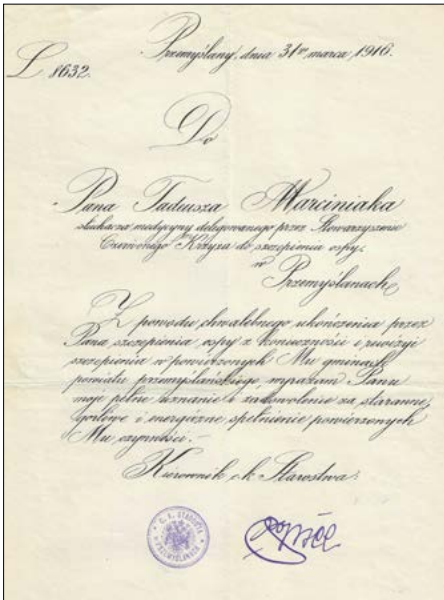 Przemyślany, dnia 31go marca 1916.
L 8632.
Do
Pana Tadeusza Marciniaka
słuchacza medycyny delegowanego przez Stowarzyszenie
Czerwonego Krzyża do szczepienia ospy
w
Przemyślanach
Z powodu chwalebnego ukończenia przez
Pana szczepienia ospy z konieczności i rewizyi
szczepienia w powierzonych Mu gminach
powiatu przemyślańskiego, wyrażam Panu
moje pełne uznanie i zadowolenie za staranne,
gorliwe i energiczne spełnienie powierzonych
Mu czynności.-
Kierownik c.k. Starostwa:
C. K. STAROSTWO
PRZEMYŚLANACH